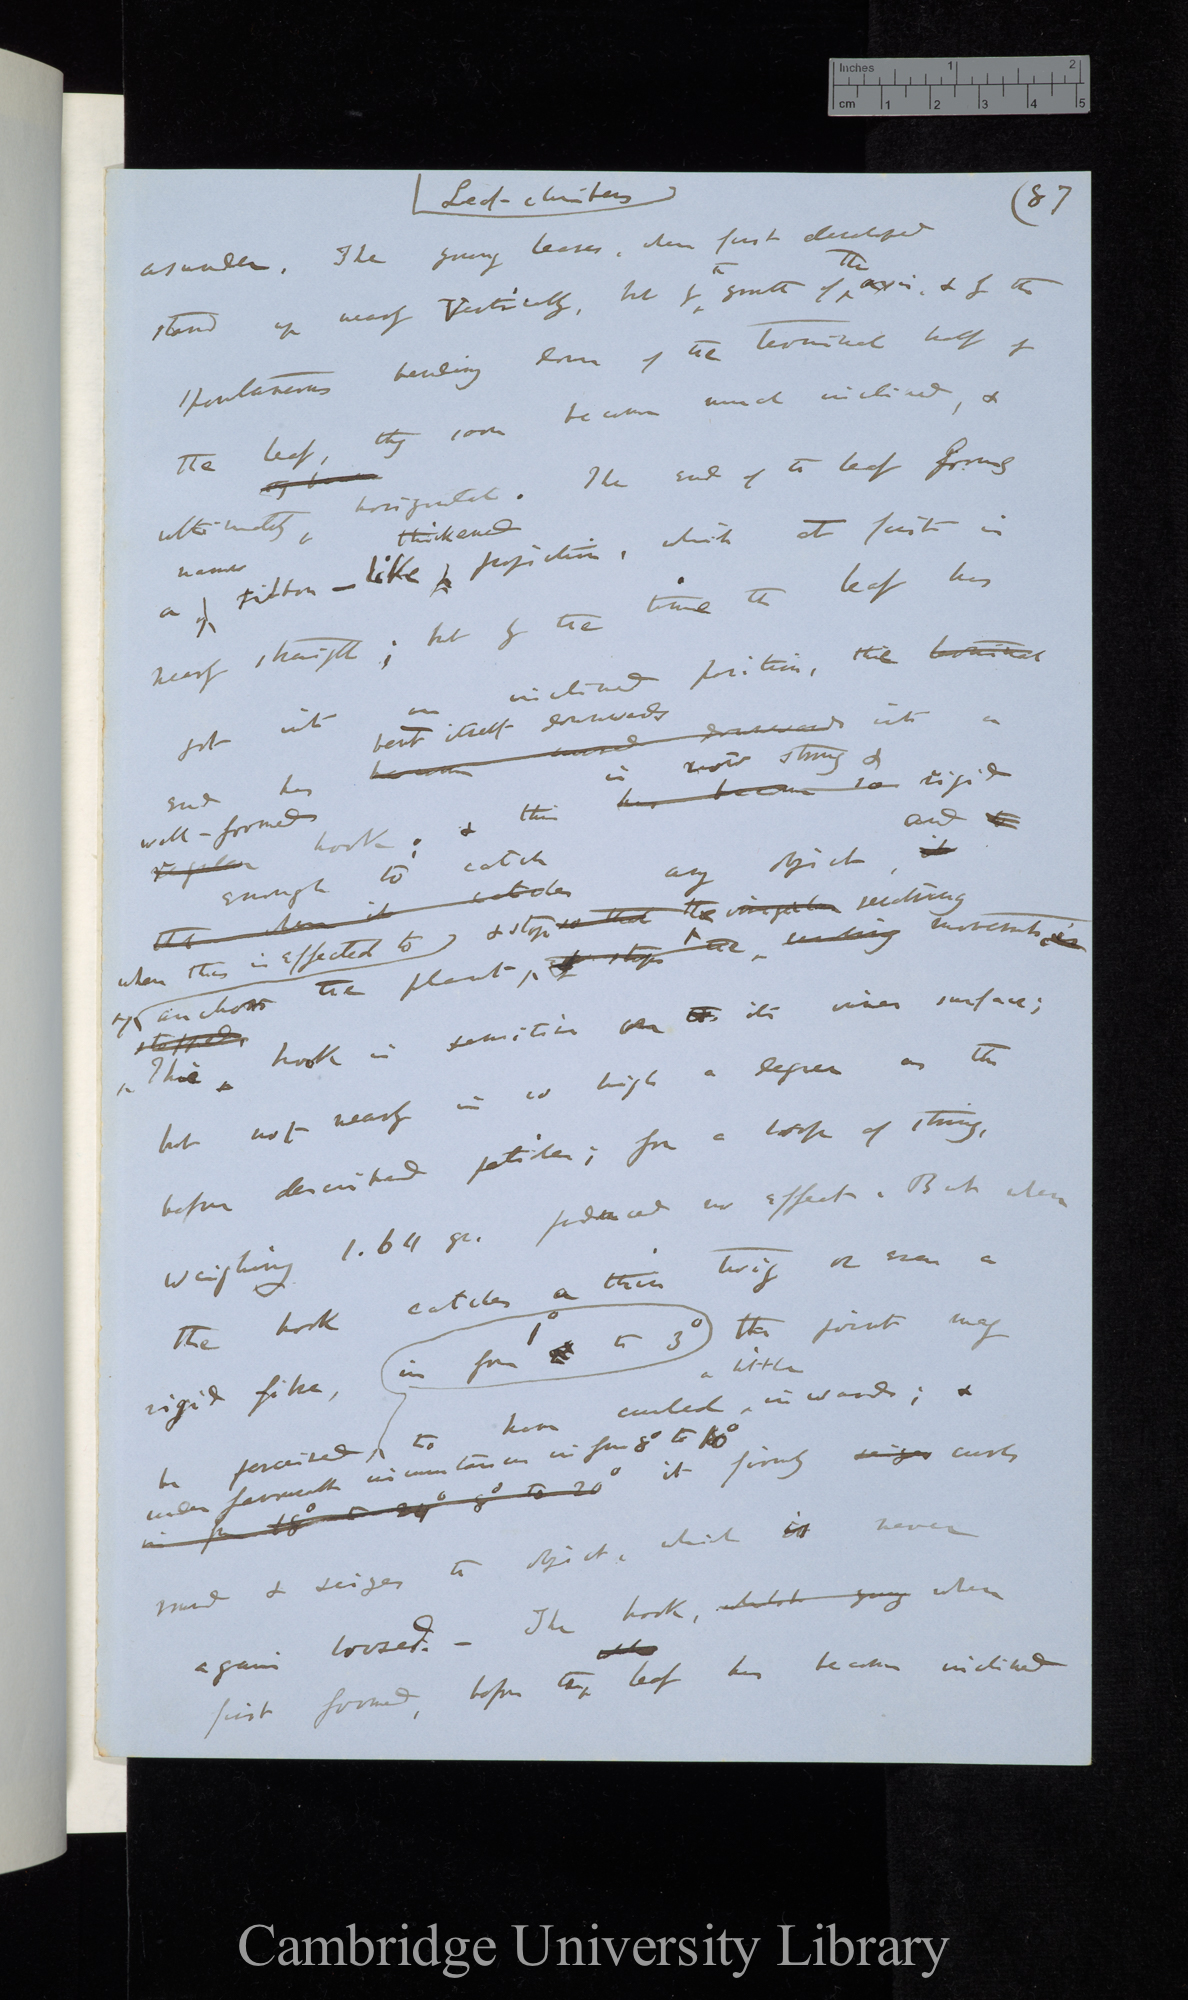 Inches 1 2
cm 1 2 3 4 5
Leaf-climbers
(87
asunder. The young leaves, when first developed
stand up nearly vertically, but by the growth of the axis, & by the
spontaneous bending down of the terminal half of
the leaf, they soon become much inclined, &
ultimately horizontal. The end of the leaf forms
narrow thickened
a ribbon-like projection, which at first is
nearly straight; but by the time the leaf has
got into an inclined position, the terminal
bent itself downwards
end has become curved downwards into a
is now strong &
well-formed
regular hook; & this has become so rigid
and
enough to catch any object,
the when it catches
when this is effected to & stop so that the irregular revolving
anchor the plant, stops the revolving movements
stopped.
This hook is sensitive on its inner surface;
but not nearly in so high a degree as the
before described petioles; for a loop of string,
weighing 1.64 gr. produced no effect. But when
the hook catches a thin twig or even a
rigid fibre, in from 1° to 3° the point may
a little
be perceived to have curled inwards; &
under favourable circumstances in from 8° to 10°
in from 18° to 24° 8° to 20° it firmly seizes curls
round & seizes the object, which is never
again loosed. — The hook, whilst young when
first formed, before the leaf has become inclined
Cambridge University Library